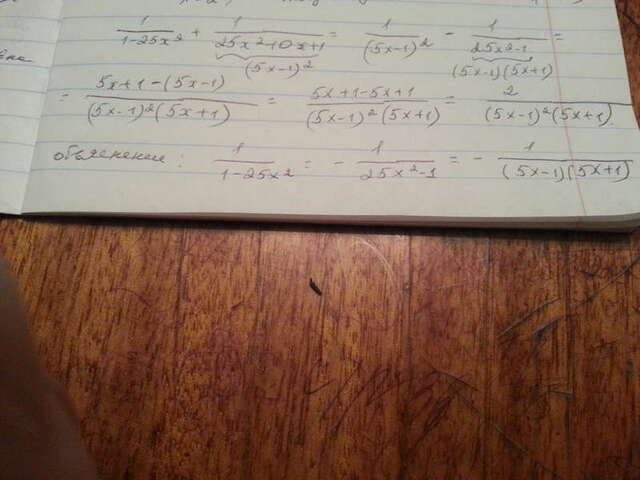 1/(1-25x²) + 1/(25x²-10x+1) = 1/(5x-1)² - 1/(25x²-1) =
(5x-1)² (5x-1)(5x+1)
= (5x+1-(5x-1))/((5x-1)²(5x+1)) = (5x+1-5x+1)/((5x-1)²(5x+1)) = 2/((5x-1)²(5x+1)).
объяснение: 1/(1-25x²) = - 1/(25x²-1) = - 1/((5x-1)(5x+1))